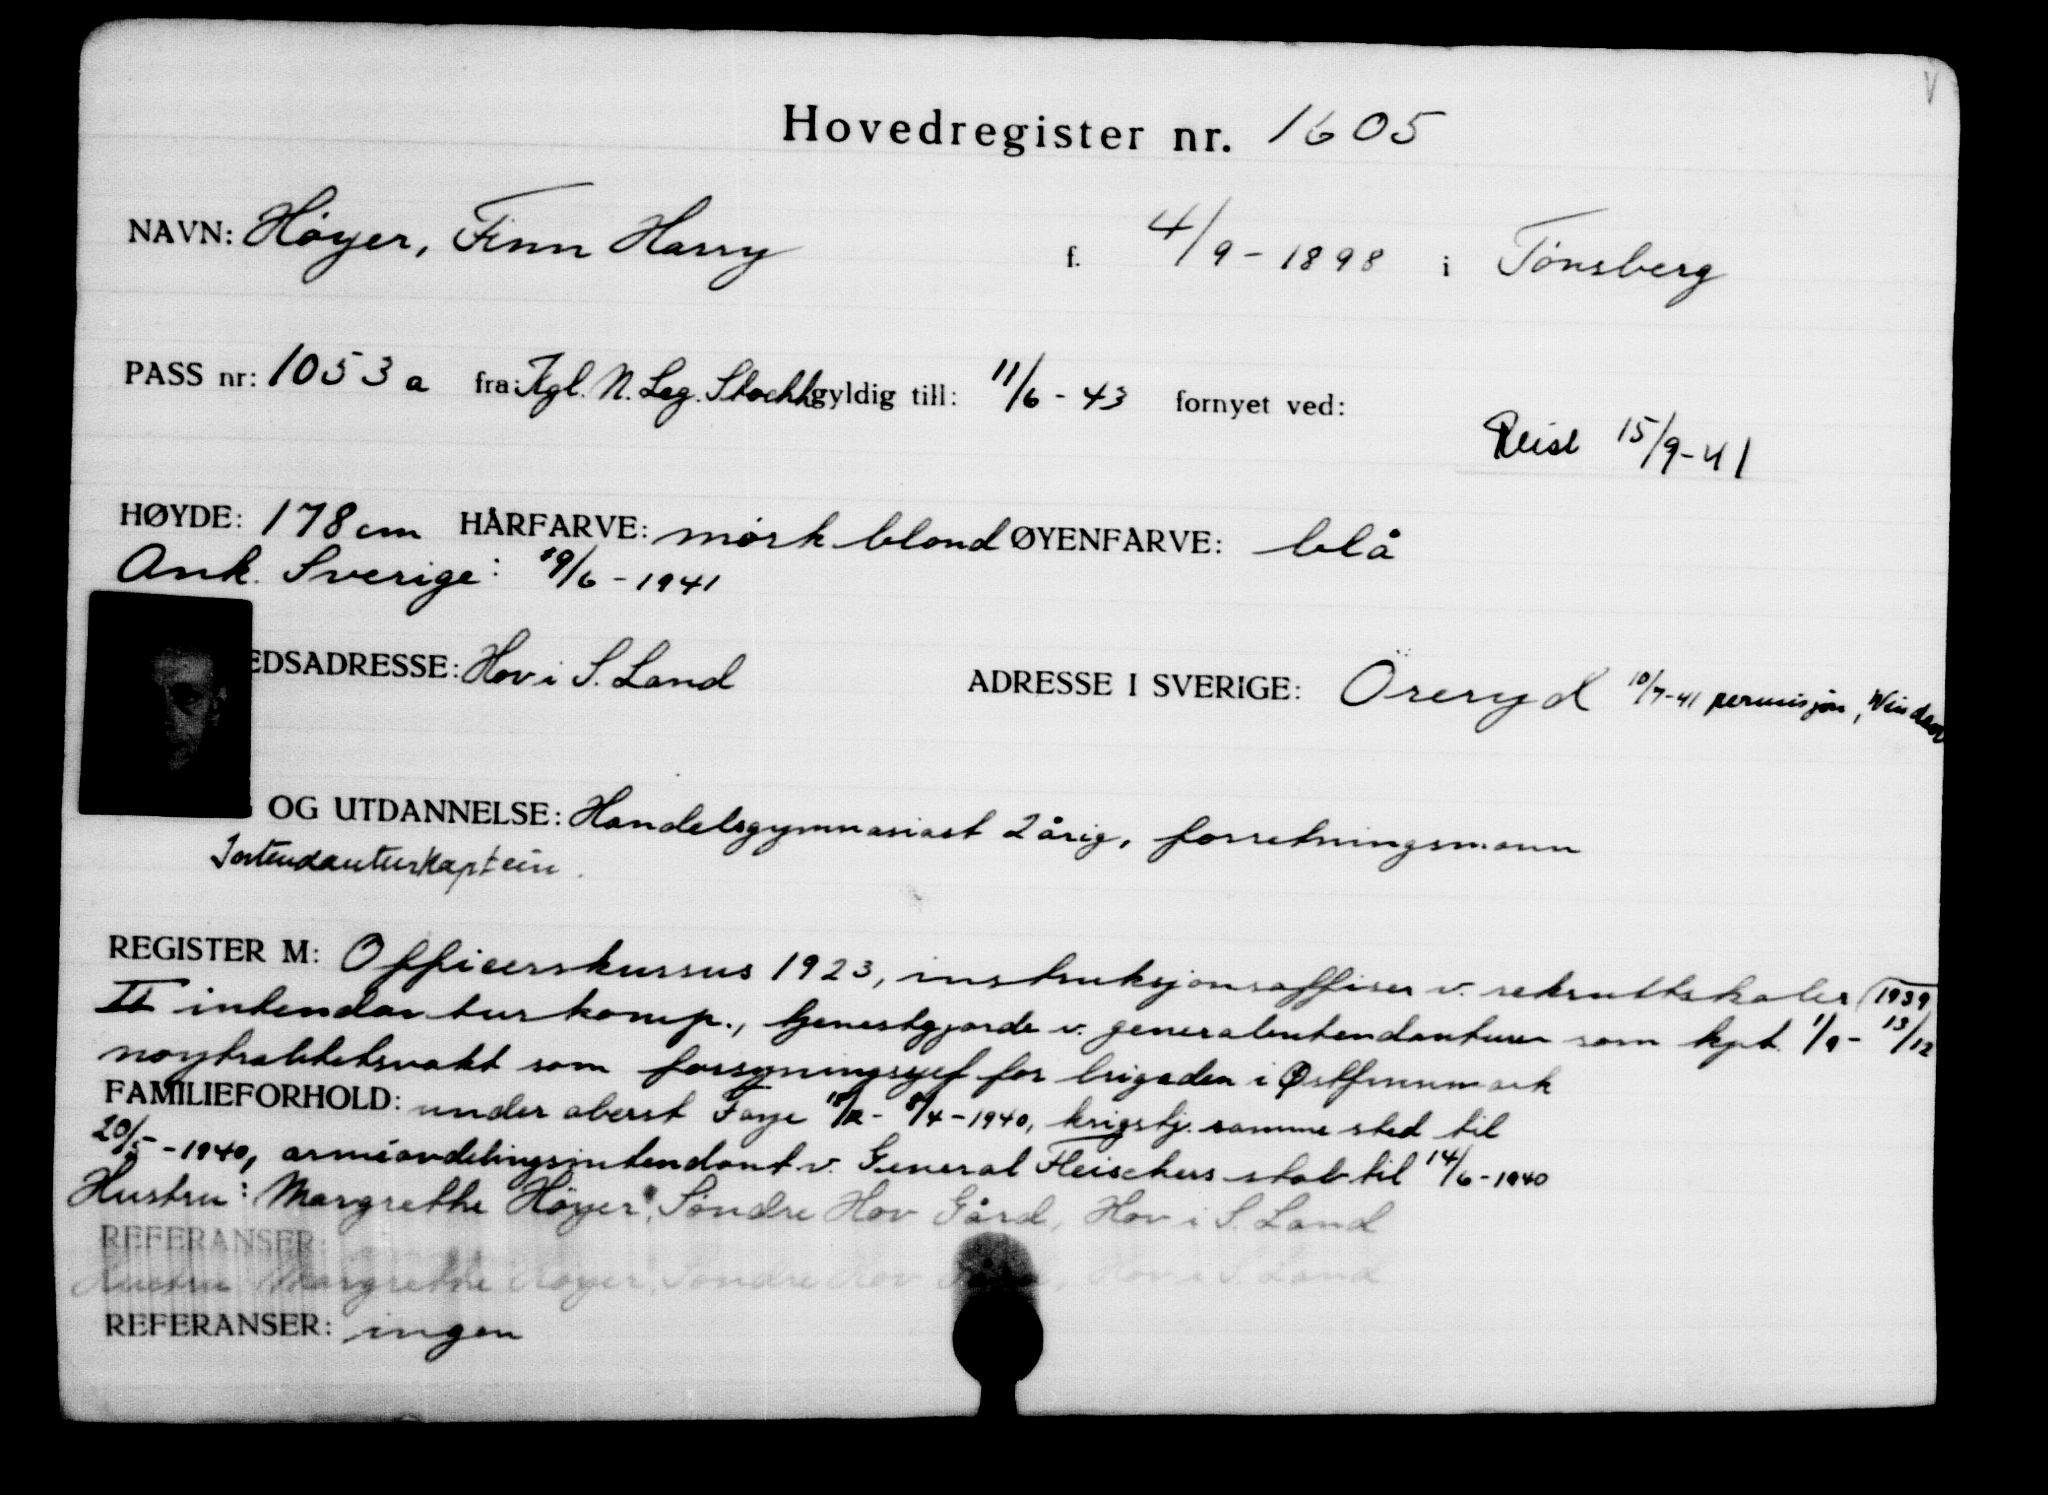 V
Hovedregister nr. 1605
NAVN: Høyer, Finn Harry f. 4/9-1898 i Tønsberg
PASS nr: 1053 a fra: Kgl. N. Leg. Stockh. gyldig till: 11/6-43 fornyet ved:
Reist 15/9-41
HØYDE: 178 cm HÅRFARVE: mørk blond ØYENFARVE: blå
Ank. Sverige: /6-1941
EDSADRESSE: Hov i S. Land ADRESSE I SVERIGE: Öreryd 10/7-41 permisjon,
OG UTDANNELSE: Handelsgymnasiast 2årig, forretningsmann
Intendanturkaptein.
REGISTER M: Officerskursus 1923, instruksjonsoffiser v. rekruttskoler (1939
II intendanturkomp., tjenestgjorde v. generalintendanturen som kpt. 1/9- 13/12
nøytralitetsvakt som forsyningssjef for brigaden i Østfinnmark
FAMILIEFORHOLD: under oberst Faye /12- 8/4-1940, krigstj. samme sted til
20/5-1940, arméavdelingsintendant v. General Fleischers stab til 14/6-1940
Hustru: Margrethe Høyer, Søndre Hov Gård, Hov i S. Land
REFERANSER:
Hustru Margrethe Høyer, Søndre Hov Gård, Hov i S. Land
REFERANSER: ingen